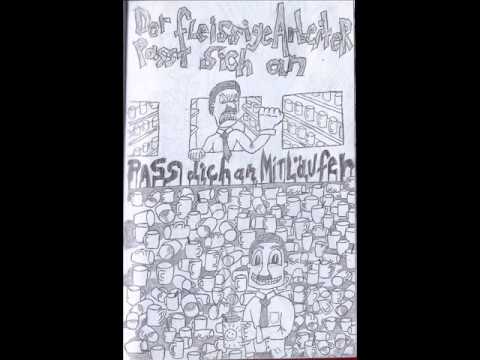 Der fleissige Arbeiter
Passt sich an
PASS dich an Mitläufer